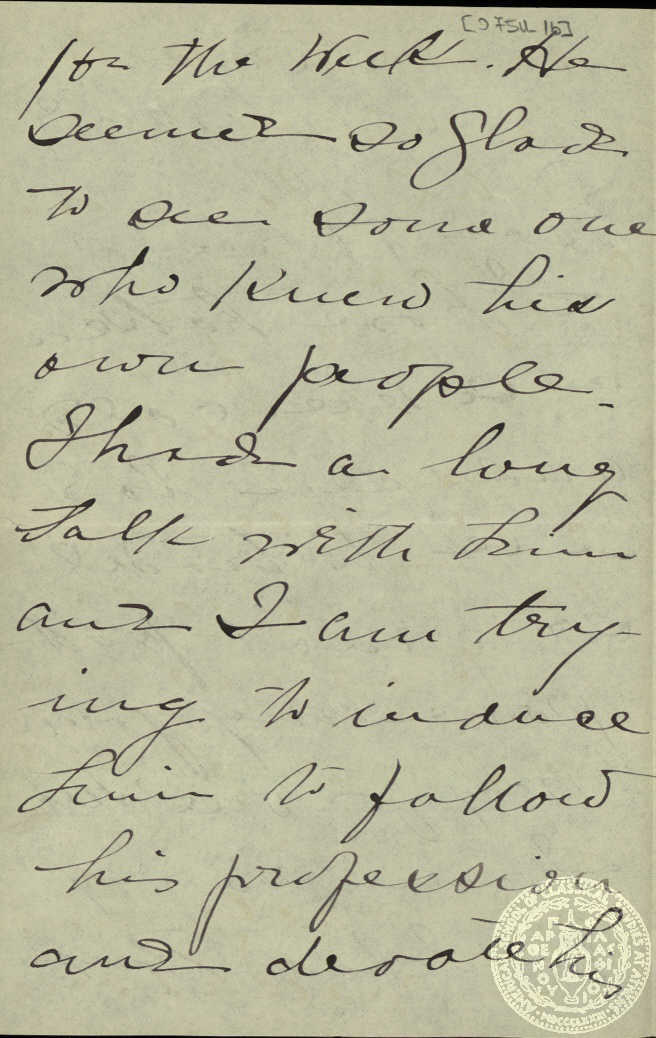 for the week. He
seemed so glad
to see some one
who knew his
own people.
I had a long
talk with him
and I am try-
ing to induce
him to follow
his profession
and devote his